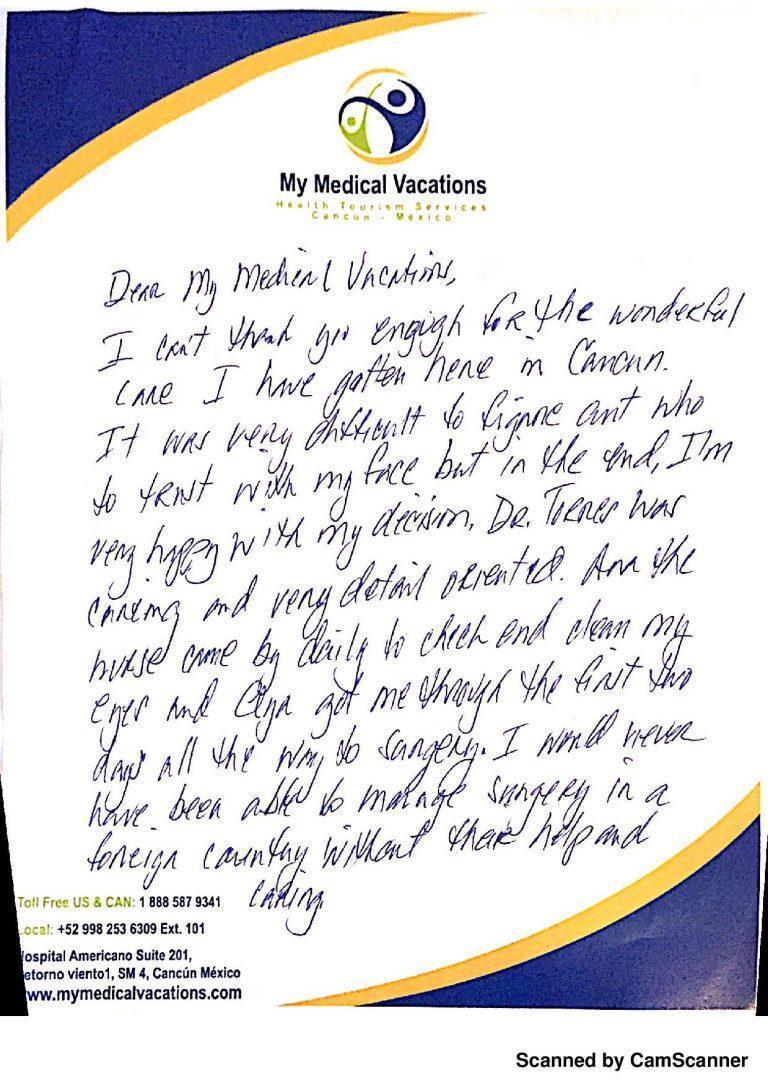 My Medical Vacations
Health Tourism Services
Cancun - Mexico
Dear My Medical Vacations,
I can't thank you enough for the wonderful
care I have gotten here in Cancun.
It was very difficult to figure out who
to trust with my face but in the end, I'm
very happy with my decision. Dr. Torres was
caring and very detail oriented. Ana the
nurse came by daily to check and clean my
eyes and got me through the first two
days all the way to surgery. I would never
have been able to manage surgery in a
foreign country without their help and
caring
Toll Free US & CAN: 1 888 587 9341
ocal: +52 998 253 6309 Ext. 101
ospital Americano Suite 201,
etorno viento1, SM 4, Cancún México
www.mymedicalvacations.com
Scanned by CamScanner